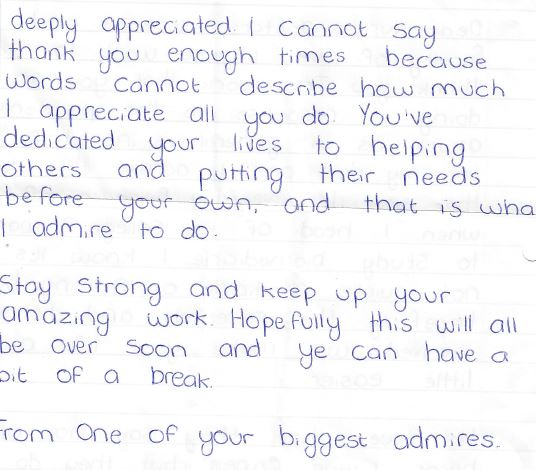 deeply appreciated. I cannot say
thank you enough times because
words cannot describe how much
I appreciate all you do. You've
dedicated your lives to helping
others and putting their needs
before your own, and that is wha
I admire to do.
Stay strong and keep up your
amazing work. Hopefully this will all
be over soon and ye can have a
bit of a break.
From One of your biggest admires.